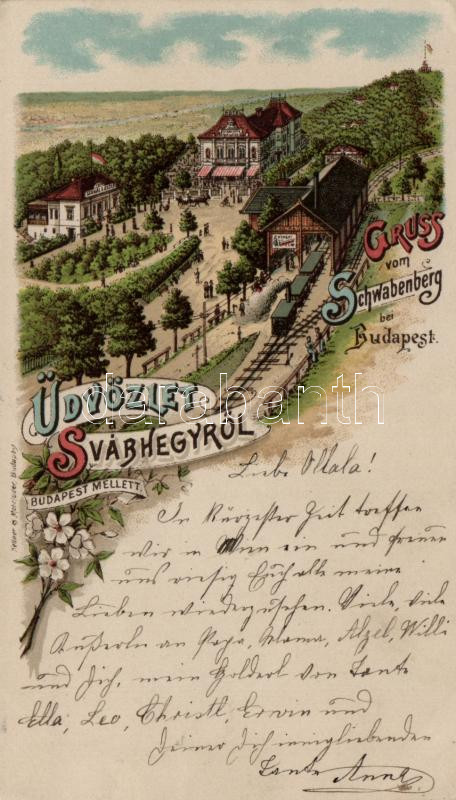 GRUSS
vom
Schwabenberg
bei
Budapest.
ÜDVÖZLET
SVÁBHEGYRŐL
BUDAPEST MELLETT.
darabanth
Liebe Ollala!
In kürzester Zeit treffen
wir in Wien ein und freuen
uns riesig Euch alle meine
Lieben wiederzusehen. Viele, viele
an Papa, Mama, Willi
und Dich, mein Golderl von Tante
Ella, Leo, Christl, Erwin und
Deiner Dich inniglebenden
Tante Anna